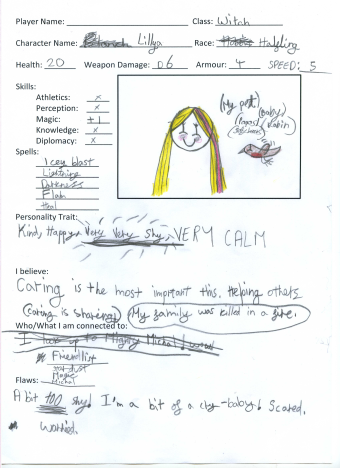 Player Name: Class: Witch
Character Name: Lillya Race: Halfling
Health: 20 Weapon Damage: D6 Armour: 4 SPEED: 5
Skills:
Athletics: x
Perception: x
Magic: +1
Knowledge: x
Diplomacy: x
Spells:
Icey blast
Lightning
Darkness
Flah
Heal
(My pet!)
(baby)
Robin
Personality Trait:
Kind, Happy, Very Very Shy, VERY CALM
I believe:
Caring is the most important this. Helping others
(Caring is sharing) (My family was killed in a fire.)
Who/What I am connected to:
I look up to Mighty Michal
Friendlist
Magic
Michal
Flaws:
A bit too shy! I'm a bit of a cry-baby! Scared.
Worried.